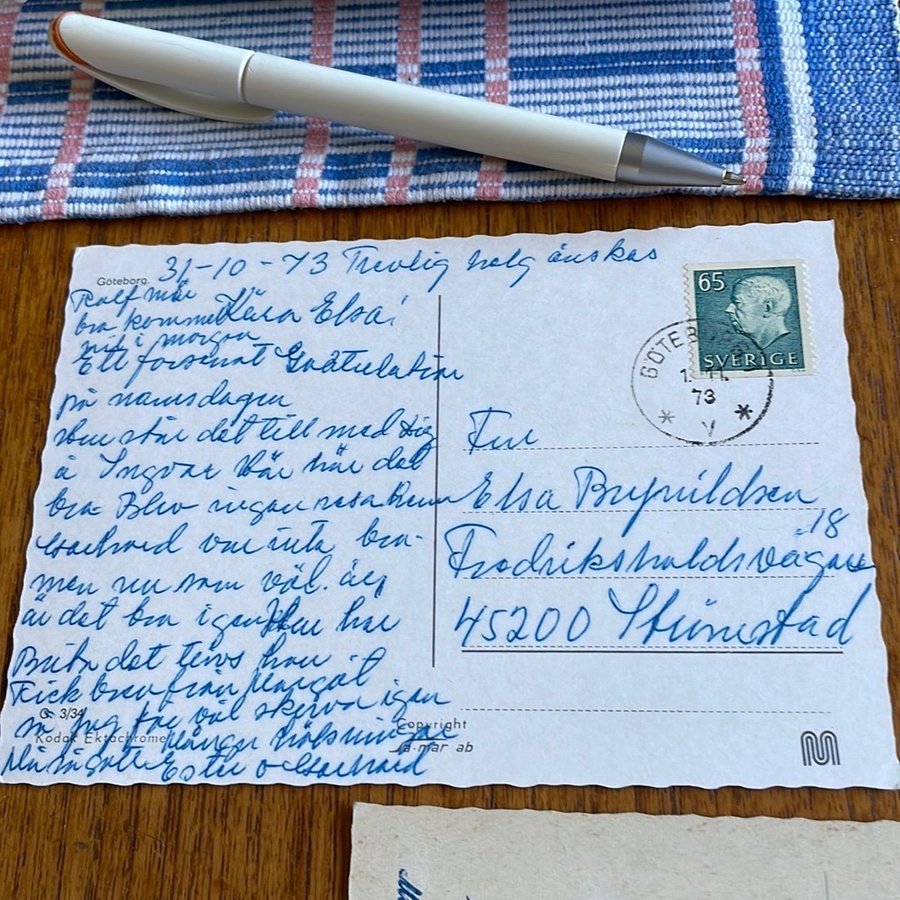 31-10-73 Trevlig helg önskas
Göteborg.
Rolf mår
bra kommer
hit i morgon
Kära Elsa!
Ett försenat Gratulation
på namnsdagen
Hur står det till med Dig
å Ingvar Här är det
bra Blev ingen resa
var inte bra
men nu som väl är
är det bra igen Hur har
Britta det trivs hon
Fick brev från Margot
så jag får väl skriva igen
Många hälsningar
Ester o
G. 3/34
Kodak Ektachrome
Copyright
ja-mar ab
65
SVERIGE
GÖTEB
1. 11.
73
V
Fru
Elsa Brynildsen
Fredrikshaldsvägen 18
45200 Strömstad